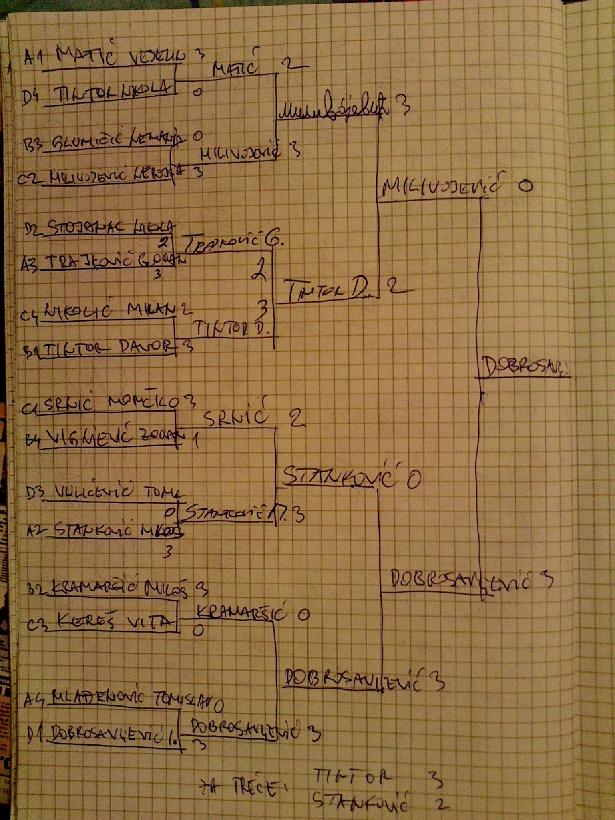 A1 MATIĆ VESELIN 3
MATIĆ 2
D4 TINTOR NIKOLA 0
MILIVOJEVIĆ 3
B3 GLUMIČIĆ NEMANJA 0
MILIVOJEVIĆ 3
C2 MILIVOJEVIĆ NEBOJŠA 3
MILIVOJEVIĆ 0
D2 STOJSAVLJ
2
TRAJKOVIĆ G.
A3 TRAJKOVIĆ GORAN
3
2
TINTOR D. 2
C4 NIKOLIĆ MILAN 2
3
TINTOR D.
B1 TINTOR DAVOR 3
DOBROSAV.
C1 SRNIĆ MOMČILO 3
SRNIĆ 2
B4 VIGNJEVIĆ ZORAN 1
STANKOVIĆ 0
D3 VULIĆEVIĆ TOMA
0
STANKOVIĆ M. 3
A2 STANKOVIĆ MILOŠ
3
DOBROSAVLJEVIĆ 3
B2 KRAMARŠIĆ MILOŠ 3
KRAMARŠIĆ 0
C3 KEREŠ VITA 0
DOBROSAVLJEVIĆ 3
A4 MLADENOVIĆ TOMISLAV 0
DOBROSAVLJEVIĆ 3
D1 DOBROSAVLJEVIĆ I. 3
ZA TREĆE: TINTOR 3
STANKOVIĆ 2